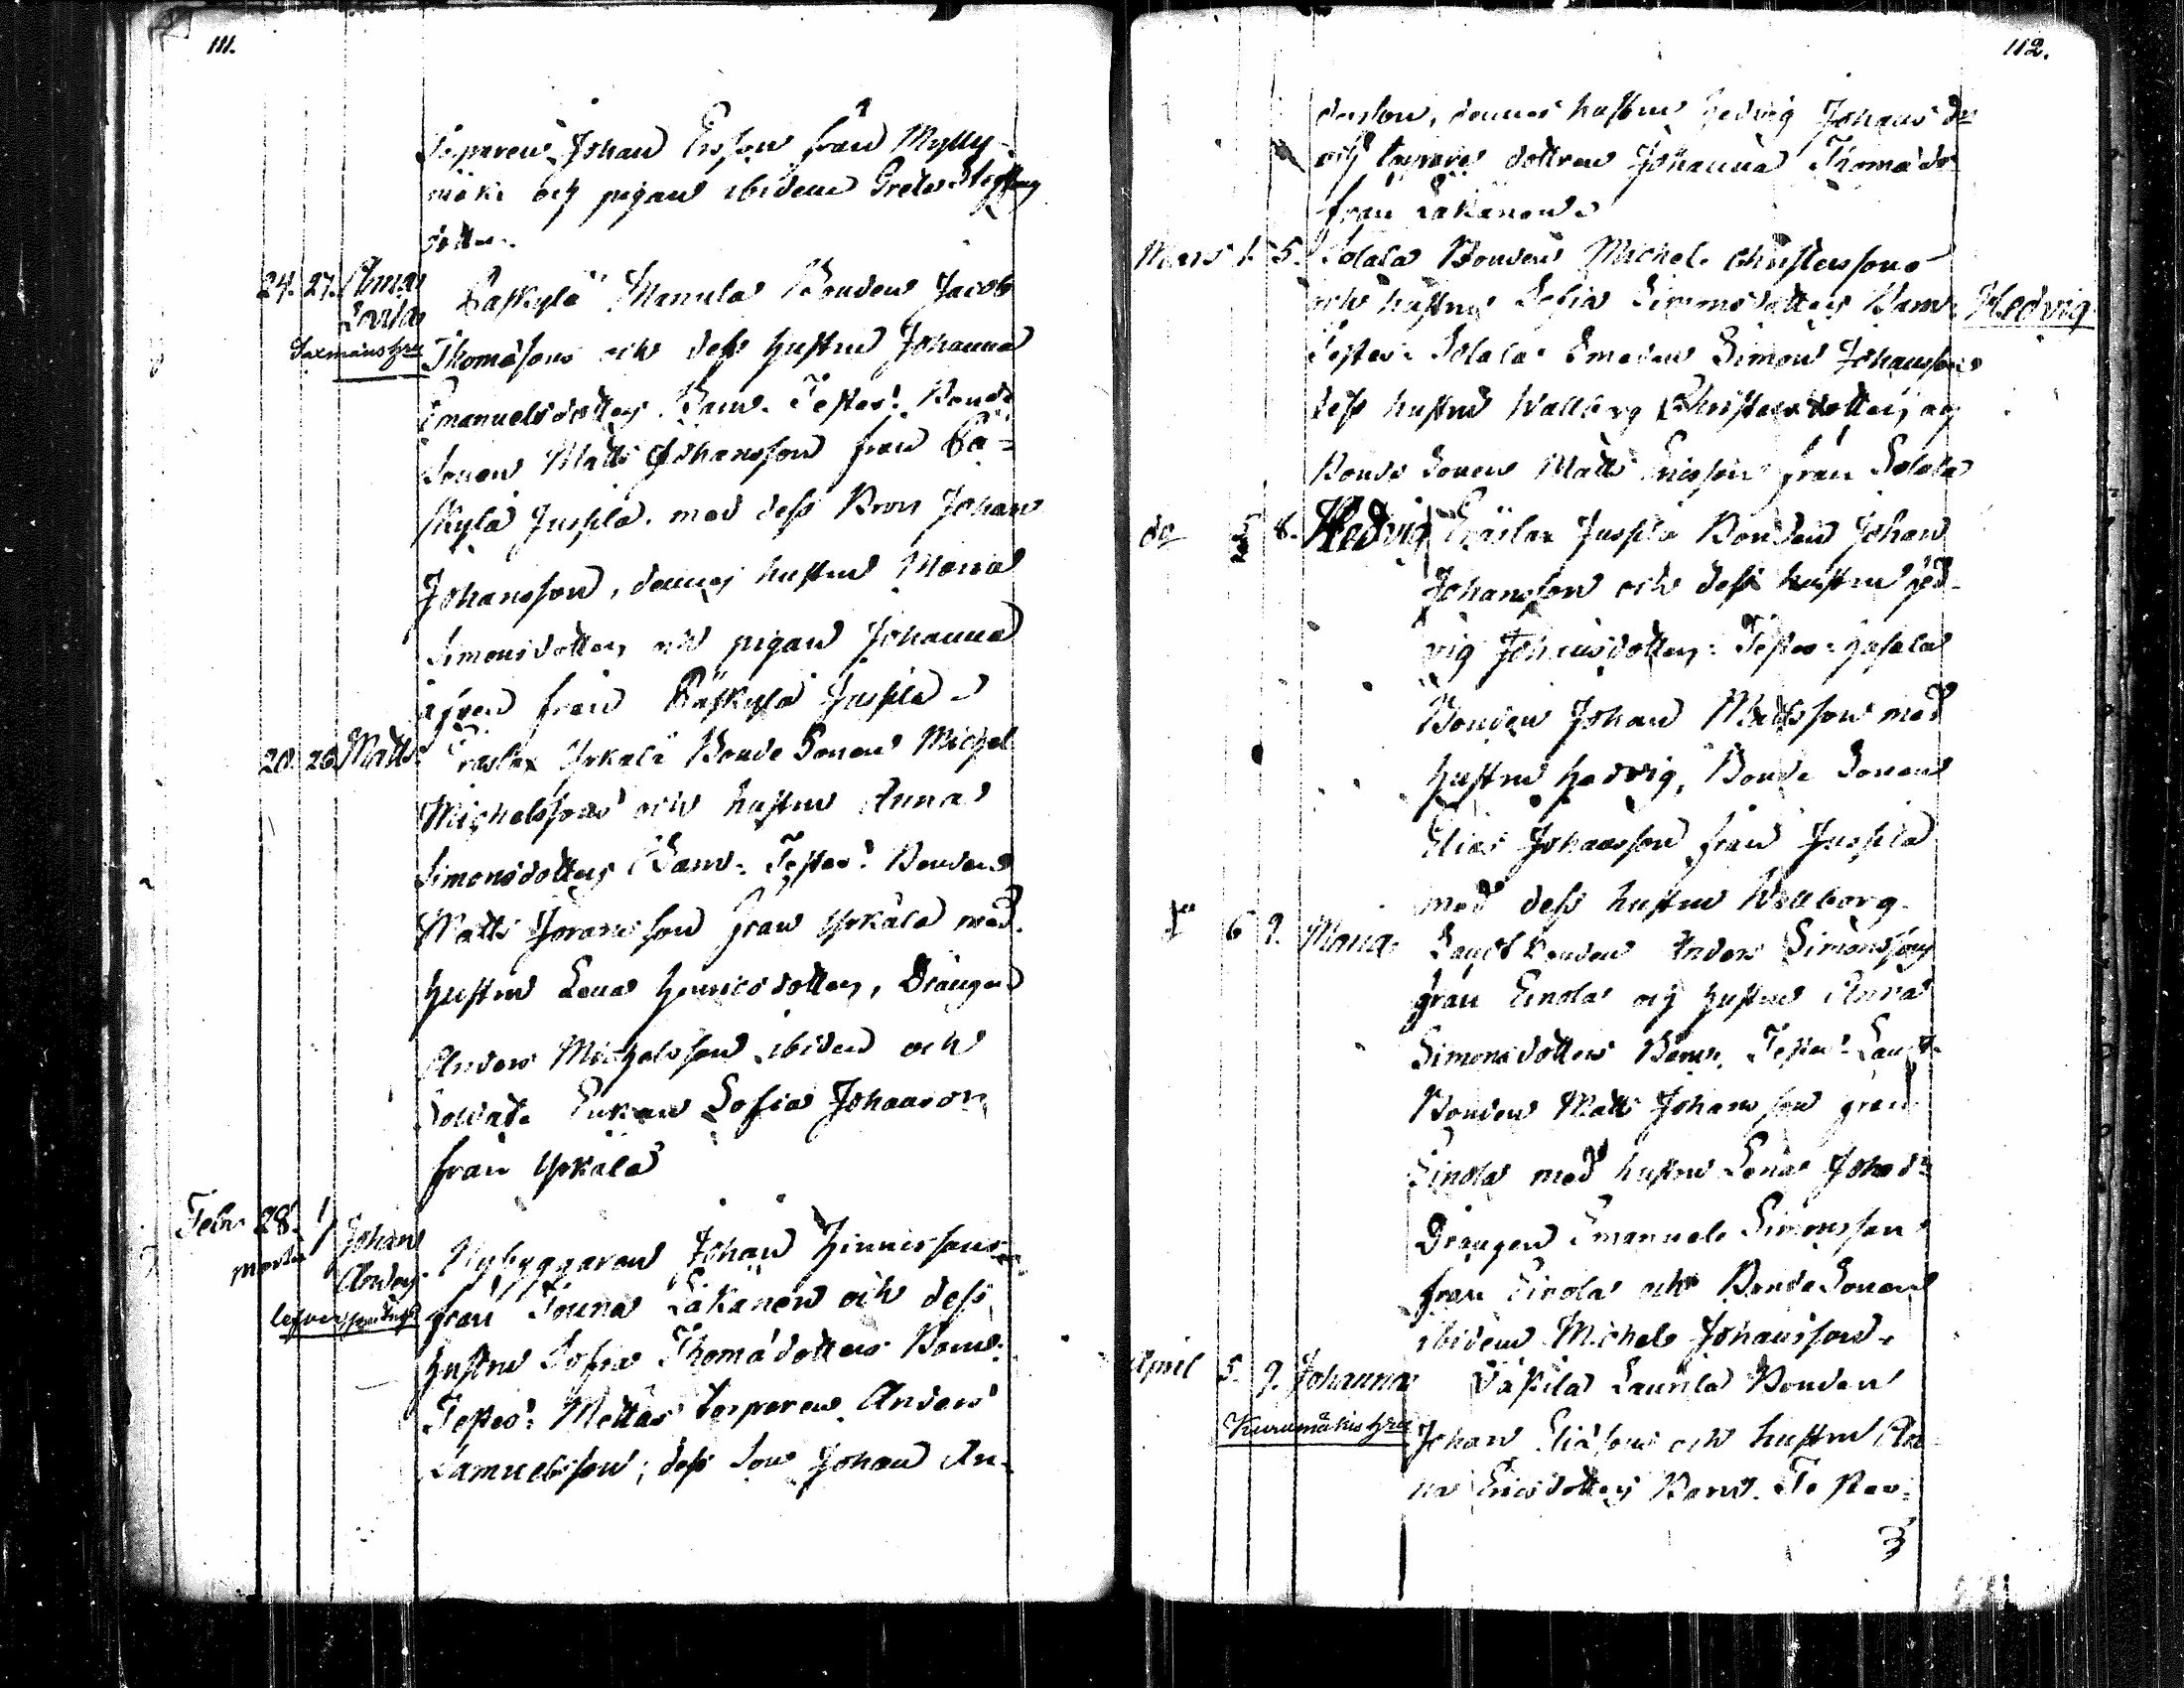 111.
Torparen Johan Ersson från Mylly-
mäki och pigan ibidem Greta
dotter.
24. 27. Anna Lovisa Raskylä Mannila Bonden Jacob
Thomæsons och dess hustru Johanna
Emanuelsdotters Barn. Testes: Bonde
Sonen Matts Johansson från Rä-
skylä Jussila, med dess Bror Johan
Johansson, dennes hustru Maria
Simonsdotter, och pigan Johanna
från Räskylä Jussila
20. 26. Matts Yrkälä Bonde Sonen Michel
Michelssons och hustru Anna
Simonsdotters Barn. Testes: Bonden
Matts Göransson från Yrkälä med
hustru Lena Henricsdotter, Drängen
Anders Michelsson ibidem och
Soldate Enkan Sofia Johansdr
från Yrkälä
Febr. 28. 1/ Martii Johan Anders Nybyggaren Johan Hinrissons
från Touna Lakanen och dess
hustru Sofia Thomædotters Barn.
Testes: Mettäs torparen Anders
Samuelsson; dess Son Johan An-
112.
dersson, dennes hustru Hedvig Johans dr
och torpare dottren Johanna Thomædr
från Lakanen
Mars 1. 5. Solala Bonden Michel Christerssons
och hustru Sofia Simonsdotters Barn. Hedvig
Testes: Solala Smeden Simon Johansson
dess hustru Wallborg Christersdotter, och
Bonde Sonen Matts Ericsson från Solala
do 5 8. Hedvig Jussila Bonden Johan
Johansson och dess hustru Hed-
vig Johansdotter: Testes:
Bonden Johan Mattsson med
hustru Hedvig, Bonde Sonen
Elias Johansson från Jussila
med dess hustru Wallborg
6 9. Maria Bonden Anders Simonssons
från Einola och hustru Anna
Simonsdotters Barn. Testes:
Bonden Matts Johansson från
Einola med hustru Lena Johsdr
Drängen Emanuel Simonsson
från Einola och Bonde Sonen
ibidem Michel Johansson.
April 5. 9. Johanna Laurila Bonden
Johan Eliæsons och hustru An-
na Ericsdotters Barn. Testes: